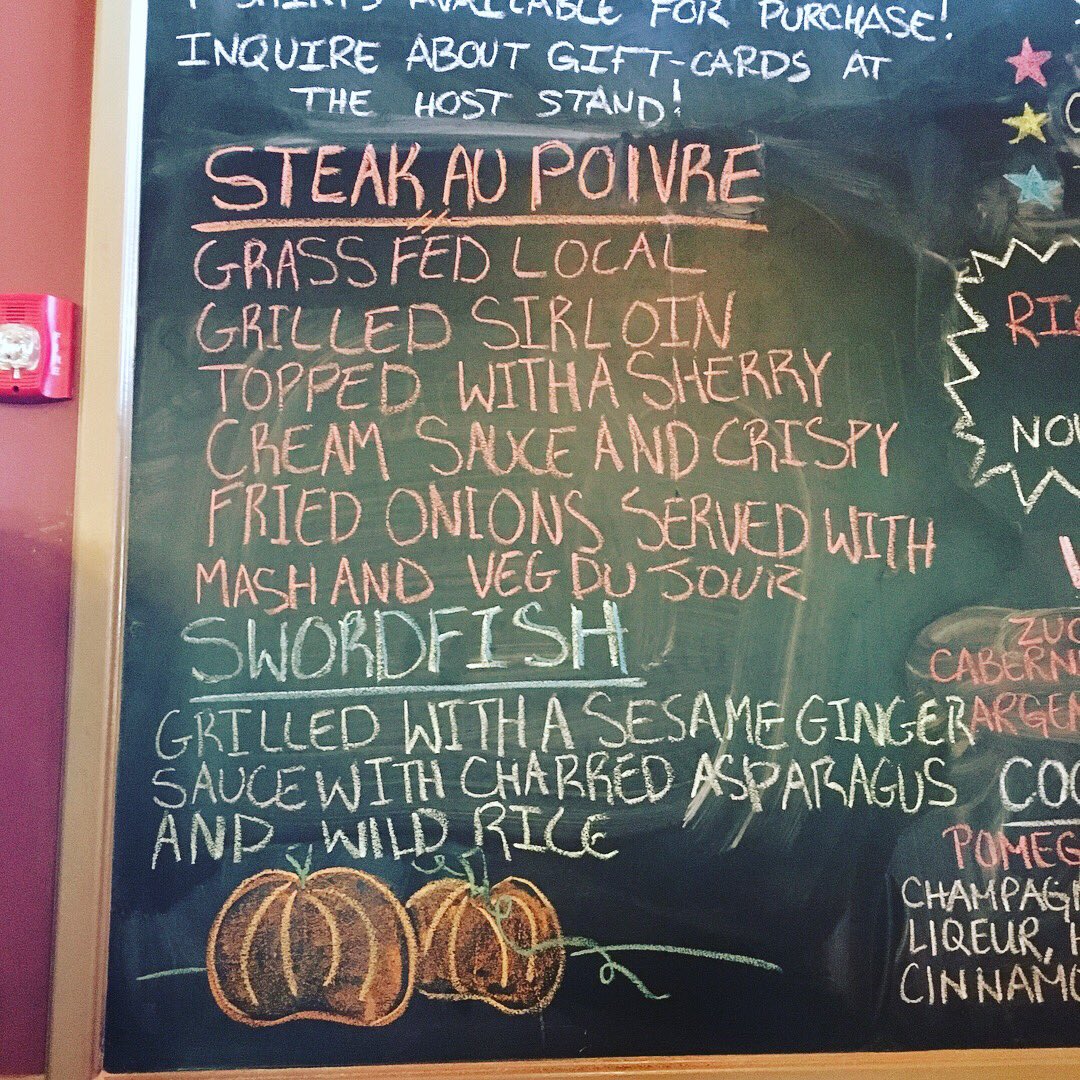 T-SHIRTS AVAILABLE FOR PURCHASE!
INQUIRE ABOUT GIFT-CARDS AT
THE HOST STAND!
STEAK AU POIVRE
GRASS FED LOCAL
GRILLED SIRLOIN
TOPPED WITH A SHERRY
CREAM SAUCE AND CRISPY
FRIED ONIONS SERVED WITH
MASH AND VEG DU JOUR
SWORDFISH
GRILLED WITH A SESAME GINGER
SAUCE WITH CHARRED ASPARAGUS
AND WILD RICE
LIQEUR,